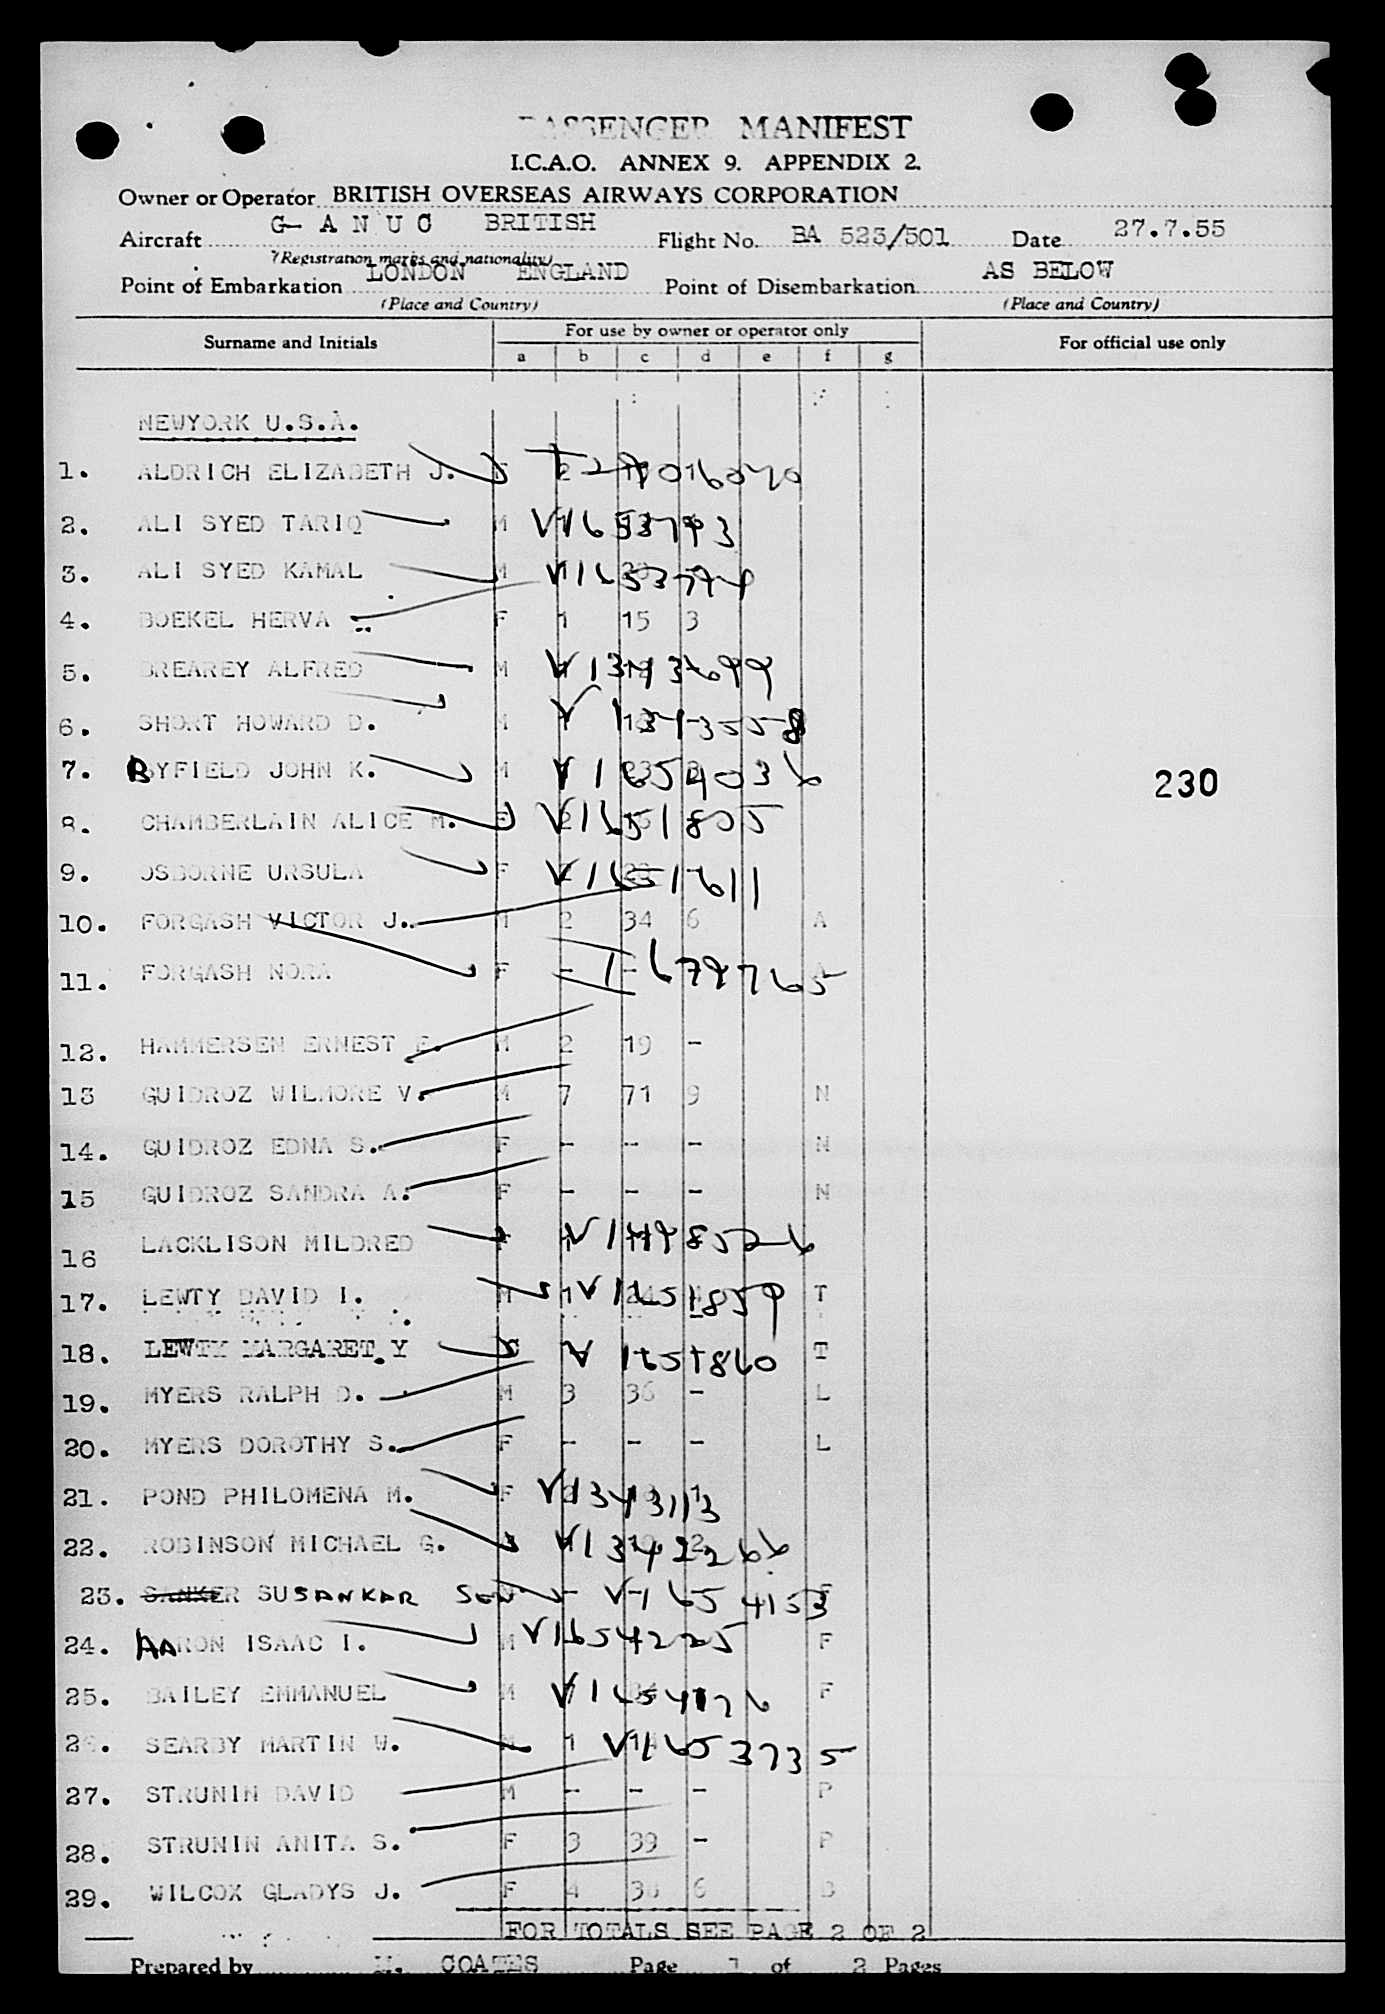 PASSENGER MANIFEST
I.C.A.O. ANNEX 9. APPENDIX 2.
Owner or Operator BRITISH OVERSEAS AIRWAYS CORPORATION
Aircraft G-ANUC BRITISH Flight No. BA 523/501 Date 27.7.55
(Registration marks and nationality)
Point of Embarkation LONDON ENGLAND Point of Disembarkation AS BELOW
(Place and Country) (Place and Country)
Surname and Initials For use by owner or operator only For official use only
a b c d e f g
NEWYORK U.S.A.
1. ALDRICH ELIZABETH J. F 2
2. ALI SYED TARIQ M V1653793
3. ALI SYED KAMAL M V1653794
4. BOEKEL HERVA F 1 15 3
5. BREAREY ALFRED M V1343699
6. SHORT HOWARD D. M V
7. BYFIELD JOHN K. M V1654036
230
8. CHAMBERLAIN ALICE M. F V1651805
9. OSBORNE URSULA F V1651611
10. FORGASH VICTOR J. M 2 34 6 A
11. FORGASH NORA F - - A
12. HAMMERSEN ERNEST E. M 2 19 -
13 GUIDROZ WILMORE V. M 7 71 9 N
14. GUIDROZ EDNA S. F - - - N
15 GUIDROZ SANDRA A. F - - - N
16 LACKLISON MILDRED F
17. LEWTY DAVID I. M 1 V1651859 T
18. LEWTY MARGARET.Y V1651860 T
19. MYERS RALPH D. M 3 36 - L
20. MYERS DOROTHY S. F - - - L
21. POND PHILOMENA M. F V1343113
22. ROBINSON MICHAEL G. V1342266
23. SANKER SUSANKAR SEN - V1654153
24. AARON ISAAC I. M V1654225 F
25. BAILEY EMMANUEL M V1654176 F
26. SEARBY MARTIN W. M 1 V1653735
27. STRUNIN DAVID M - - - P
28. STRUNIN ANITA S. F 3 39 - P
29. WILCOX GLADYS J. F 4 6
FOR TOTALS SEE PAGE 2 OF 2
Prepared by M. COATES Page 1 of 2 Pages